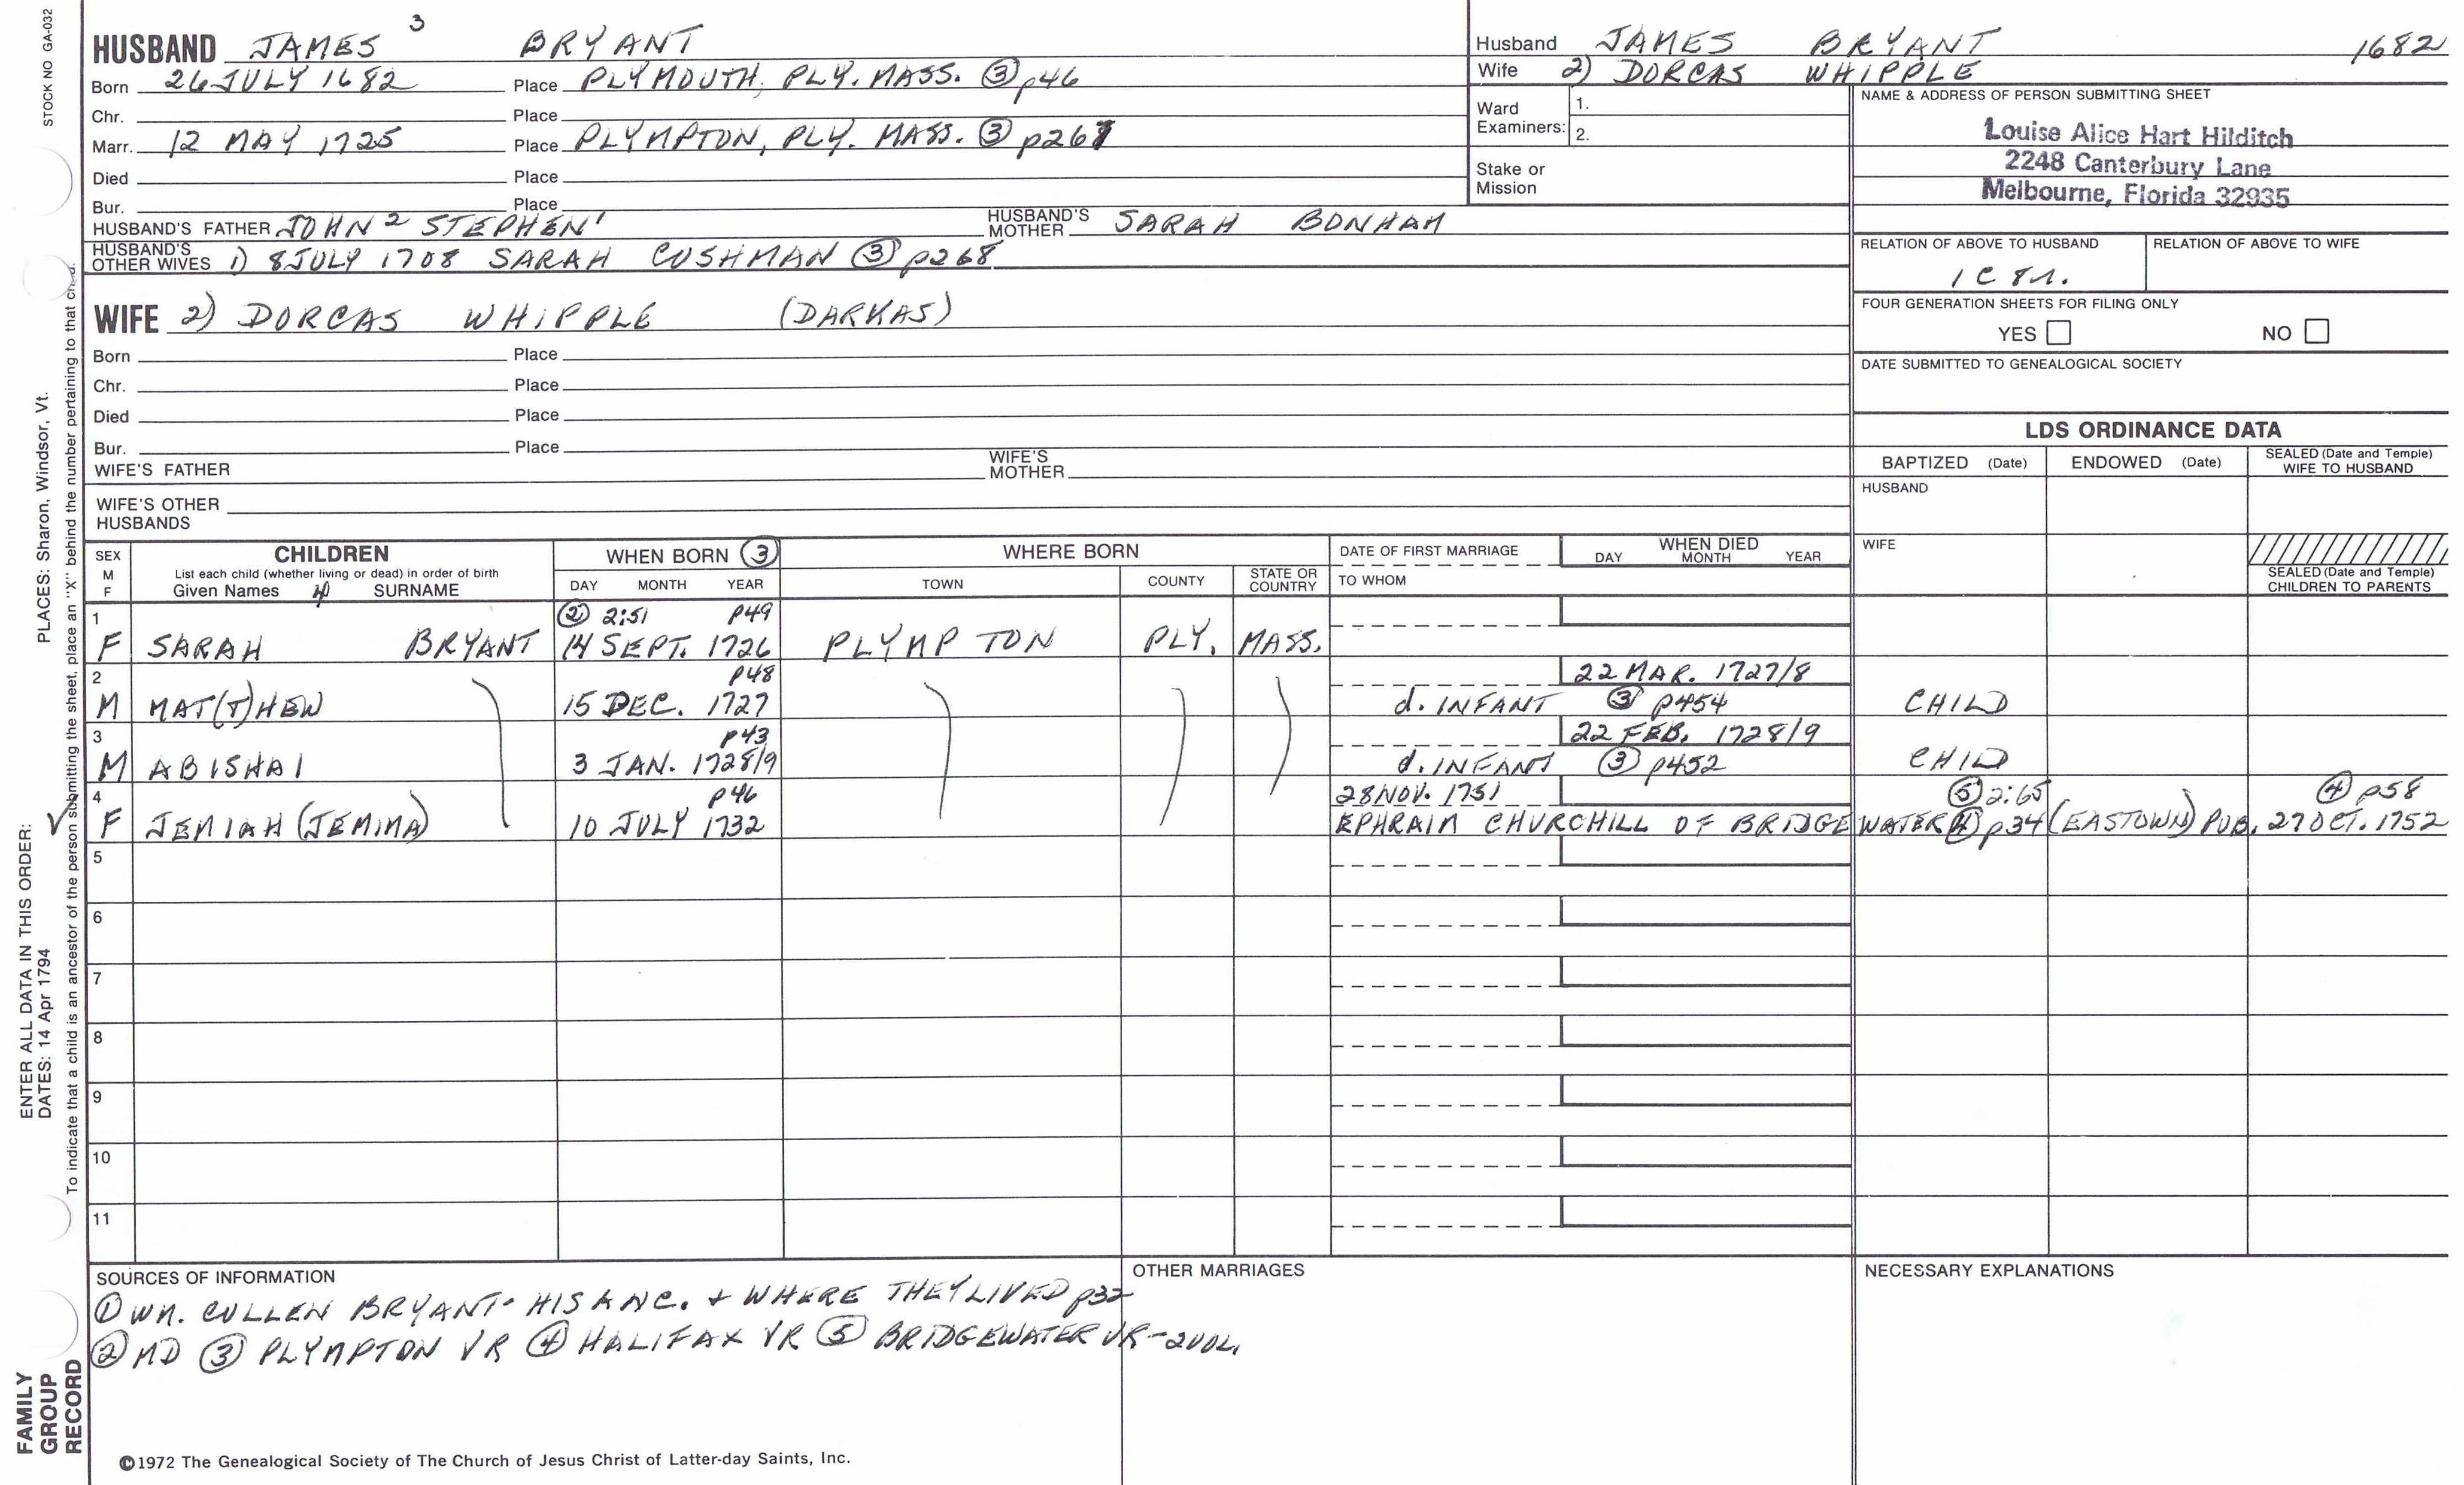 STOCK NO GA-032
HUSBAND JAMES 3 BRYANT
Born 26 JULY 1682 Place PLYMOUTH, PLY. MASS. ③ p46
Chr. Place
Marr. 12 MAY 1725 Place PLYMPTON, PLY. MASS. ③ p267
Died Place
Bur. Place
HUSBAND'S FATHER JOHN 2 STEPHEN 1 HUSBAND'S MOTHER SARAH BONHAM
HUSBAND'S OTHER WIVES 1) 8 JULY 1708 SARAH CUSHMAN ③ p268
WIFE 2) DORCAS WHIPPLE (DARKAS)
Born Place
Chr. Place
Died Place
Bur. Place
WIFE'S FATHER WIFE'S MOTHER
WIFE'S OTHER HUSBANDS
Husband JAMES BRYANT 1682
Wife 2) DORCAS WHIPPLE
Ward Examiners: 1.
2.
Stake or Mission
NAME & ADDRESS OF PERSON SUBMITTING SHEET
Louise Alice Hart Hilditch
2248 Canterbury Lane
Melbourne, Florida 32935
RELATION OF ABOVE TO HUSBAND RELATION OF ABOVE TO WIFE
1C 8
FOUR GENERATION SHEETS FOR FILING ONLY
YES NO
DATE SUBMITTED TO GENEALOGICAL SOCIETY
LDS ORDINANCE DATA
BAPTIZED (Date) ENDOWED (Date) SEALED (Date and Temple) WIFE TO HUSBAND
HUSBAND
WIFE
SEALED (Date and Temple) CHILDREN TO PARENTS
SEX M F
CHILDREN
List each child (whether living or dead) in order of birth
Given Names SURNAME
WHEN BORN ③
DAY MONTH YEAR
WHERE BORN
TOWN COUNTY STATE OR COUNTRY
DATE OF FIRST MARRIAGE
TO WHOM
WHEN DIED
DAY MONTH YEAR
1 ② 2:51 p49
F SARAH BRYANT 14 SEPT. 1726 PLYMPTON PLY. MASS.
2 p48 22 MAR. 1727/8
M MAT(T)HEW 15 DEC. 1727 d. INFANT ③ p454 CHILD
3 p43 22 FEB. 1728/9
M ABISHAI 3 JAN. 1728/9 d. INFANT ③ p452 CHILD
4 p46 28 NOV. 1751 ⑤ 2:65 ④ p58
F JEMIAH (JEMIMA) 10 JULY 1732 EPHRAIM CHURCHILL OF BRIDGEWATER ④ p34 (EASTOWN) PUB. 27 OCT. 1752
5
6
7
8
9
10
11
SOURCES OF INFORMATION
① WM. CULLEN BRYANT - HIS ANC. + WHERE THEY LIVED p32
② MD ③ PLYMPTON VR ④ HALIFAX VR ⑤ BRIDGEWATER VR - 2 VOL.
OTHER MARRIAGES
NECESSARY EXPLANATIONS
©1972 The Genealogical Society of The Church of Jesus Christ of Latter-day Saints, Inc.
FAMILY
GROUP
RECORD
ENTER ALL DATA IN THIS ORDER:
DATES: 14 Apr 1794 PLACES: Sharon, Windsor, Vt.
To indicate that a child is an ancestor of the person submitting the sheet, place an "X" behind the number pertaining to that child.